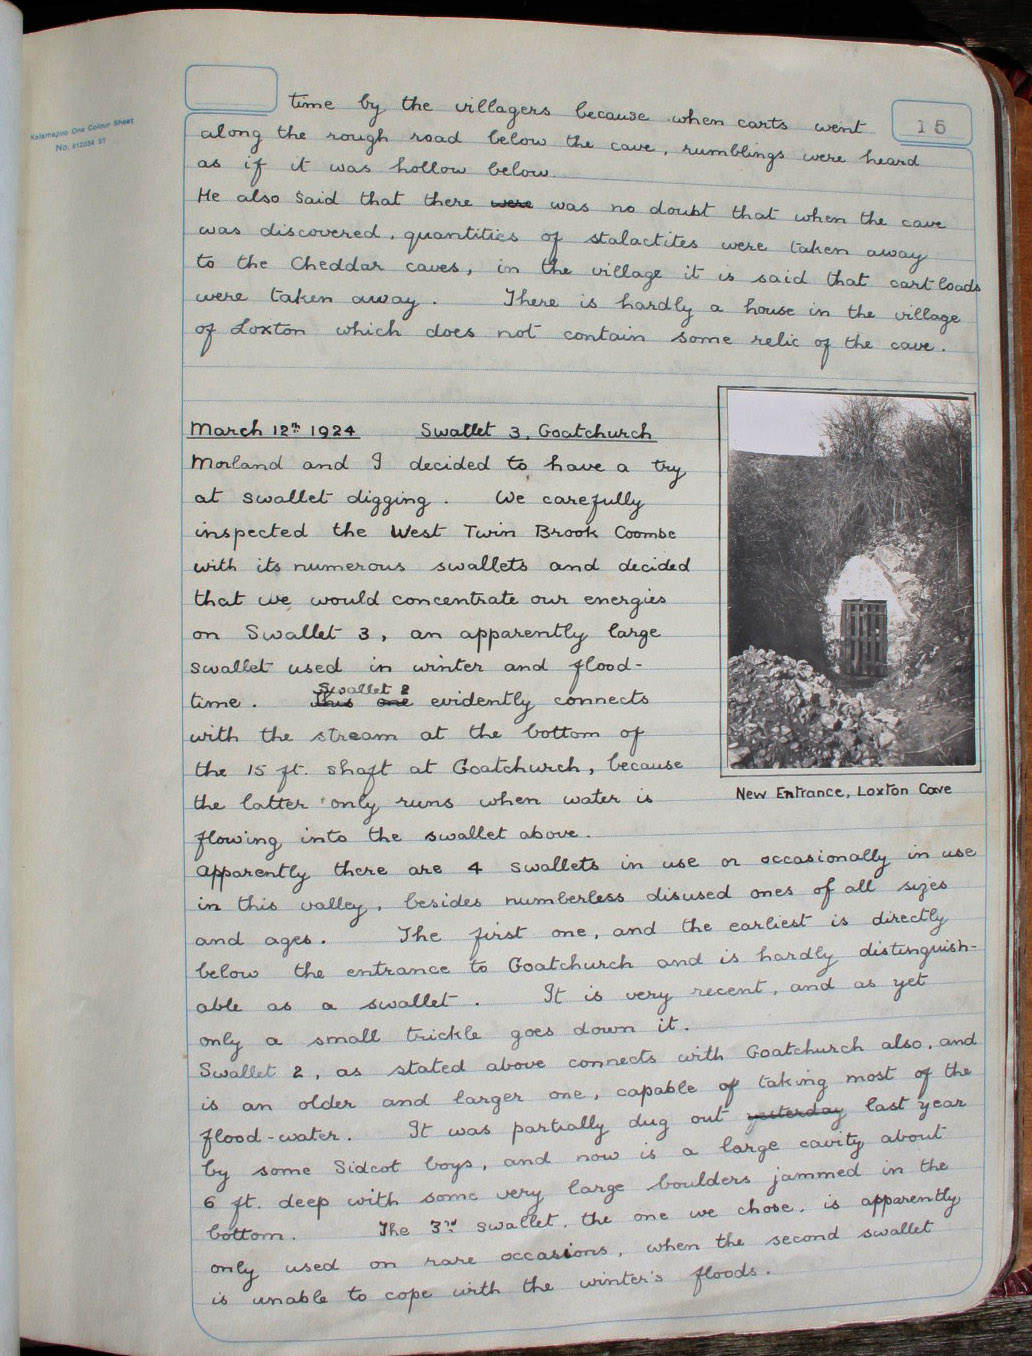 Kalamazoo One Colour Sheet
No. 612034 S1
15
time by the villagers because when carts went
along the rough road below the cave, rumblings were heard
as if it was hollow below.
He also said that there were was no doubt that when the cave
was discovered, quantities of stalactites were taken away
to the Cheddar caves, in the village it is said that cart loads
were taken away. There is hardly a house in the village
of Loxton which does not contain some relic of the cave.
March 12th 1924 Swallet 3, Goatchurch
Morland and I decided to have a try
at swallet digging. We carefully
inspected the West Twin Brook Coombe
with its numerous swallets and decided
that we would concentrate our energies
on Swallet 3, an apparently large
swallet used in winter and flood-
Swallet 2
time. This one evidently connects
with the stream at the bottom of
the 15 ft. shaft at Goatchurch, because
the latter only runs when water is
flowing into the swallet above.
New Entrance, Loxton Cave
Apparently there are 4 swallets in use or occasionally in use
in this valley, besides numberless disused ones of all sizes
and ages. The first one, and the earliest is directly
below the entrance to Goatchurch and is hardly distinguish-
able as a swallet. It is very recent, and as yet
only a small trickle goes down it.
Swallet 2, as stated above connects with Goatchurch also, and
is an older and larger one, capable of taking most of the
flood-water. It was partially dug out yesterday last year
by some Sidcot boys, and now is a large cavity about
6 ft. deep with some very large boulders jammed in the
bottom. The 3rd swallet, the one we chose, is apparently
only used on rare occasions, when the second swallet
is unable to cope with the winter's floods.